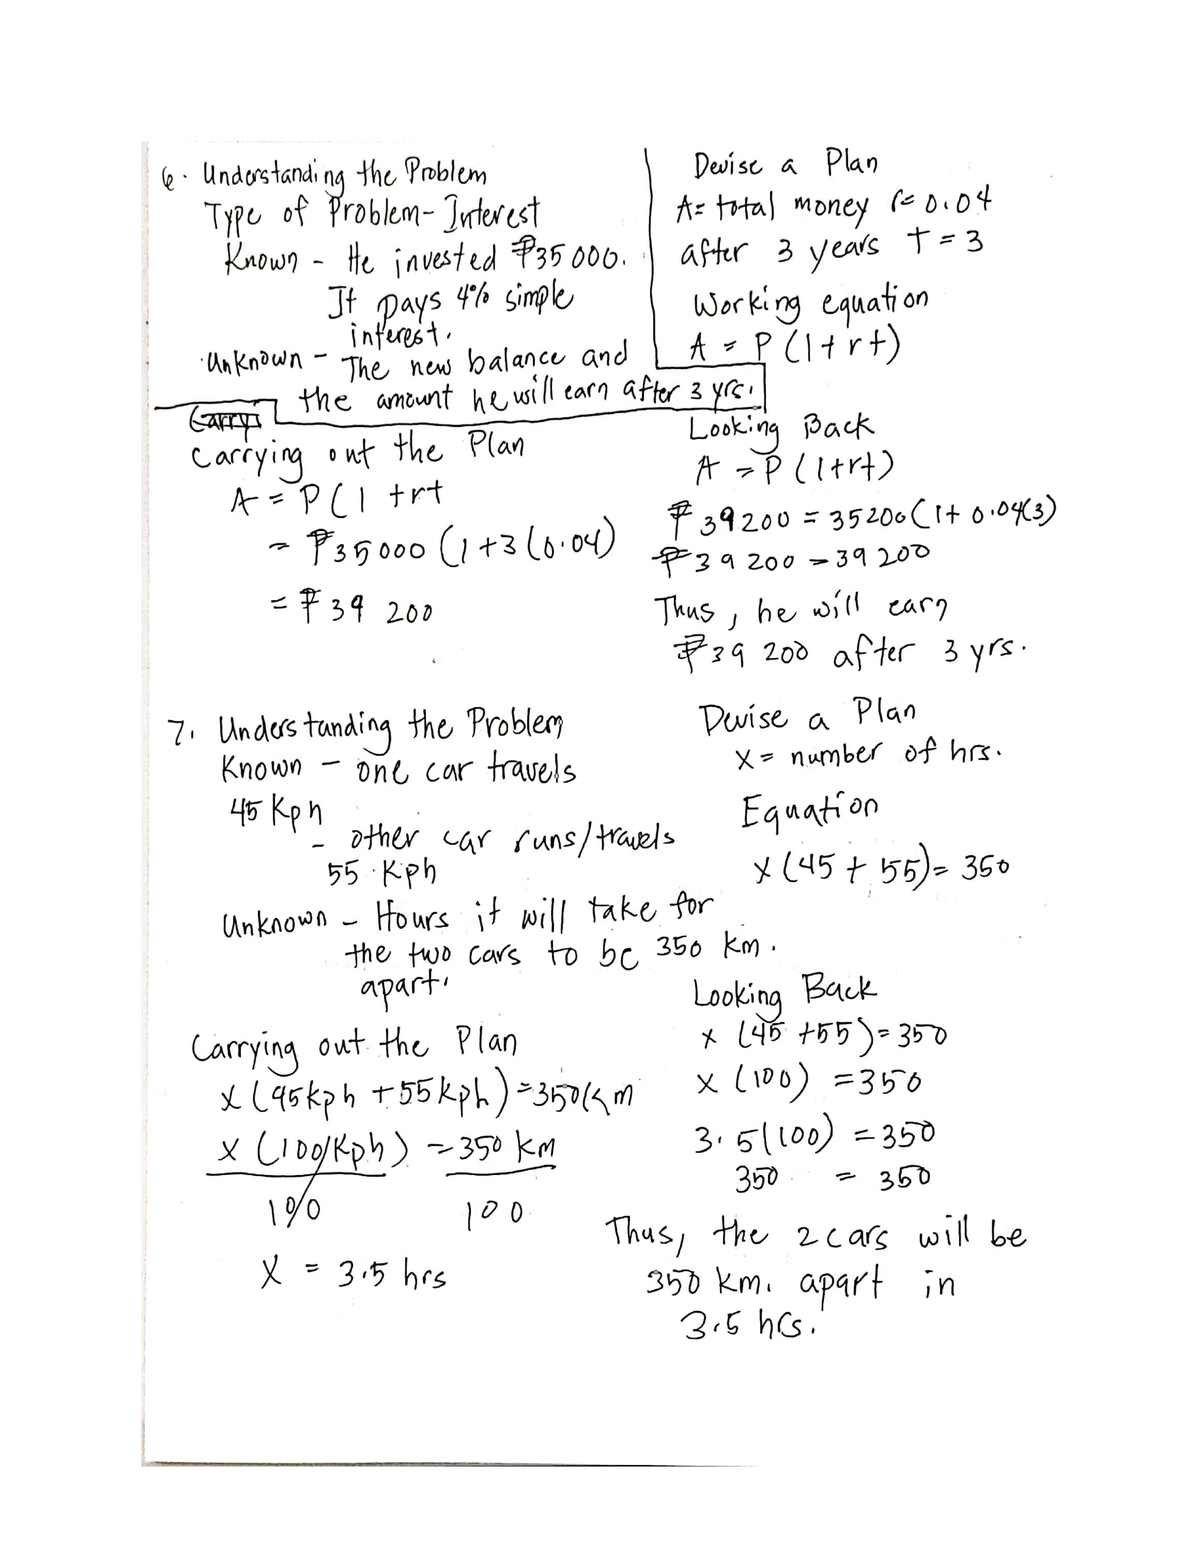 6. Understanding the Problem
Type of Problem - Interest
Known - He invested ₱35 000.
It pays 4% simple
interest.
Unknown - The new balance and
the amount he will earn after 3 yrs.
Devise a Plan
A= total money r= 0.04
after 3 years t = 3
Working equation
A = P (1+rt)
Carryi
Carrying out the Plan
A = P(1 +rt
= ₱35000 (1+3(0.04)
= ₱39 200
Looking Back
A = P (1+rt)
₱39200 = 35200(1+ 0.04(3)
₱39 200 = 39 200
Thus, he will earn
₱39 200 after 3 yrs.
7. Understanding the Problem
Known - one car travels
45 Kph
- other car runs/travels
55 Kph
Unknown - Hours it will take for
the two cars to be 350 km.
apart.
Devise a Plan
X= number of hrs.
Equation
x (45 + 55)= 350
Carrying out the Plan
x (45kph +55kph)=350km
x (100/Kph) = 350 km
100 100
X = 3.5 hrs
Looking Back
x (45 +55)=350
x (100) =350
3.5(100) =350
350 = 350
Thus, the 2 cars will be
350 km. apart in
3.5 hrs.